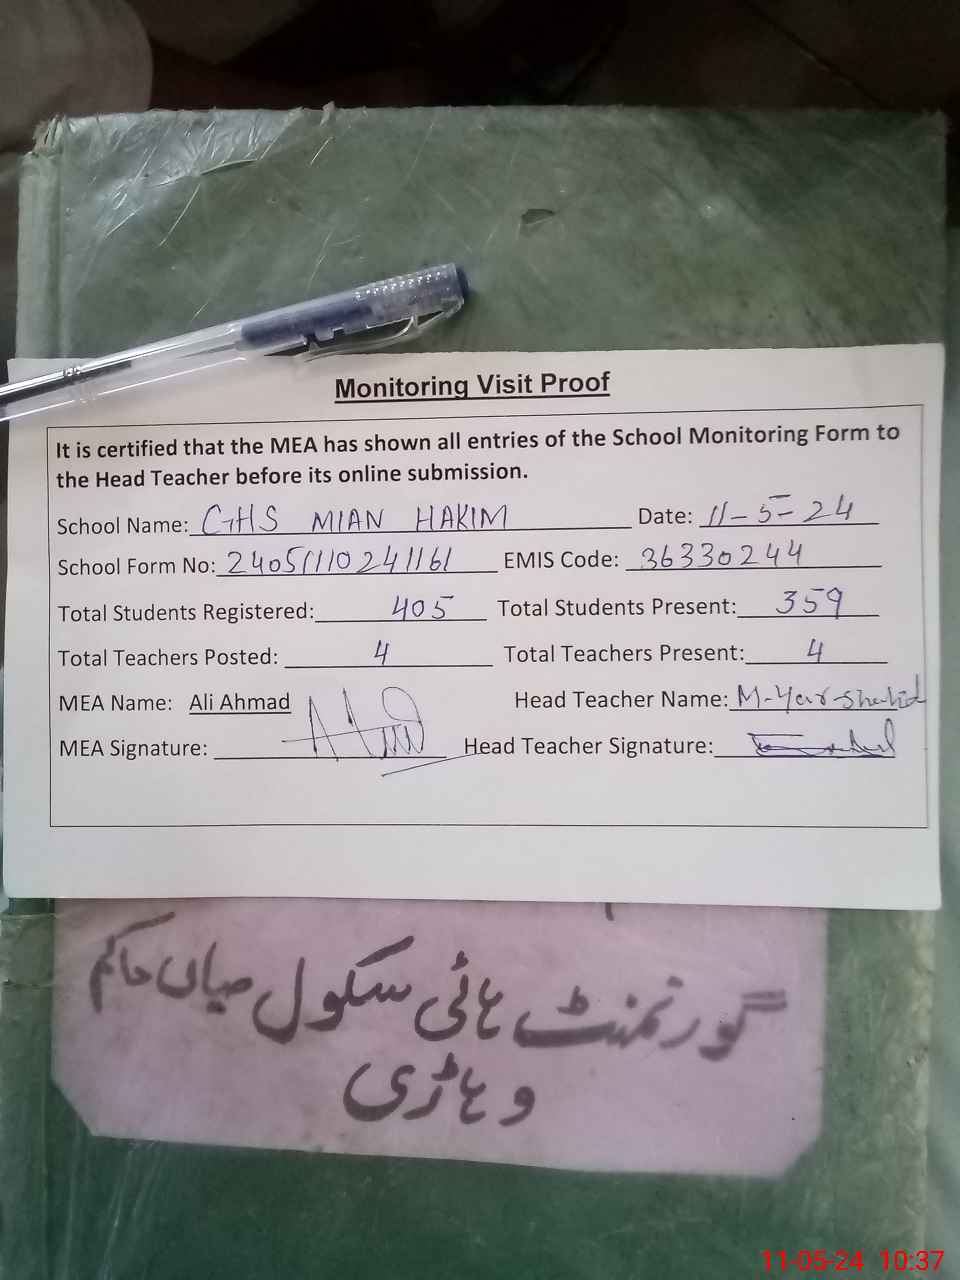 Monitoring Visit Proof
It is certified that the MEA has shown all entries of the School Monitoring Form to
the Head Teacher before its online submission.
School Name: GHS MIAN HAKIM Date: 11-5-24
School Form No: 24051110241161 EMIS Code: 36330244
Total Students Registered: 405 Total Students Present: 359
Total Teachers Posted: 4 Total Teachers Present: 4
MEA Name: Ali Ahmad Head Teacher Name: M-Yar-Shahid
MEA Signature: Head Teacher Signature:
گورنمنٹ ہائی سکول میاں حاکم
وہاڑی
11-05-24 10:37